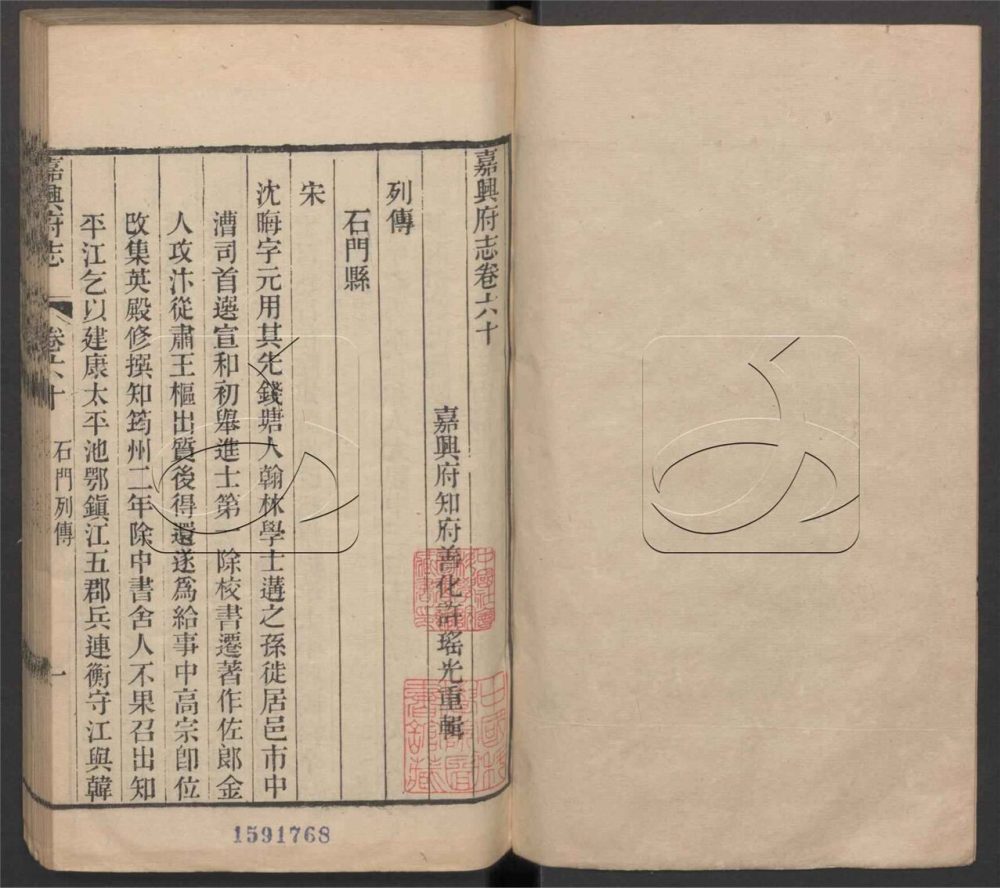 嘉興府志卷六十
嘉興府知府善化許瑤光重輯
列傳
石門縣
宋
沈晦字元用其先錢塘人翰林學士遘之孫徙居邑市中
漕司首選宣和初舉進士第一除校書遷著作佐郎金
人攻汴從肅王樞出質後得還遂爲給事中高宗卽位
改集英殿修撰知筠州二年除中書舍人不果召出知
平江乞以建康太平池鄂鎮江五郡兵連衡守江與韓
嘉興府志
卷六十
石門列傳
一
1591768